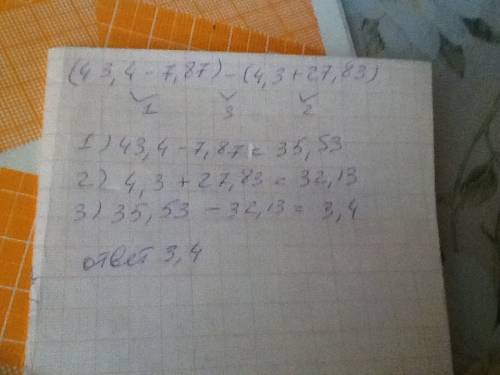 (43,4 - 7,87) - (4,3 + 27,83)
1 3 2
1) 43,4 - 7,87 = 35,53
2) 4,3 + 27,83 = 32,13
3) 35,53 - 32,13 = 3,4
ответ 3,4